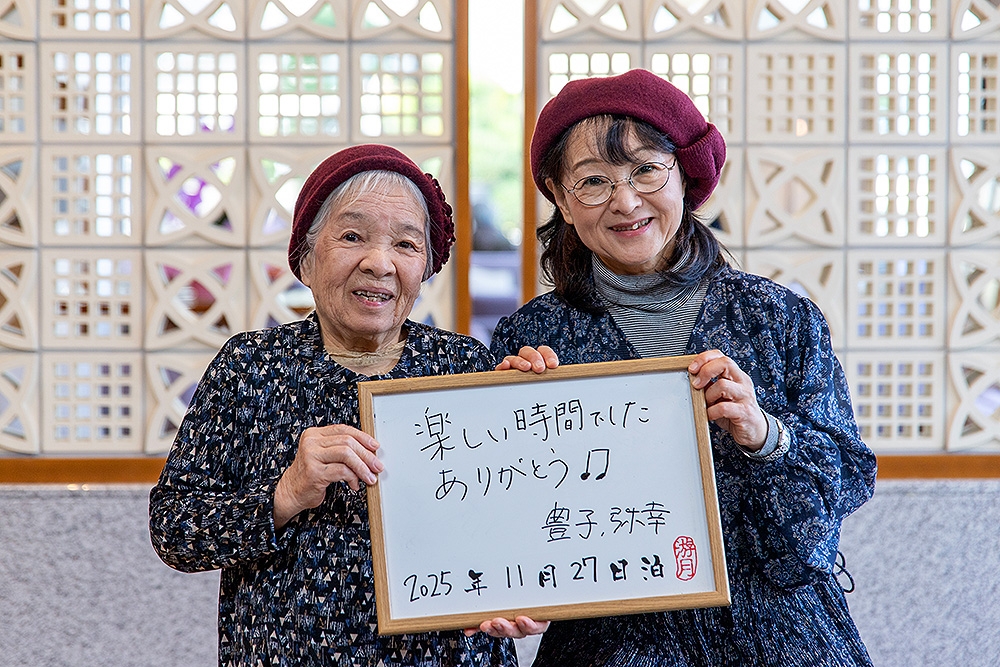 楽しい時間でした
ありがとう♫
豊子、弥幸
2025年11月27日泊
游月